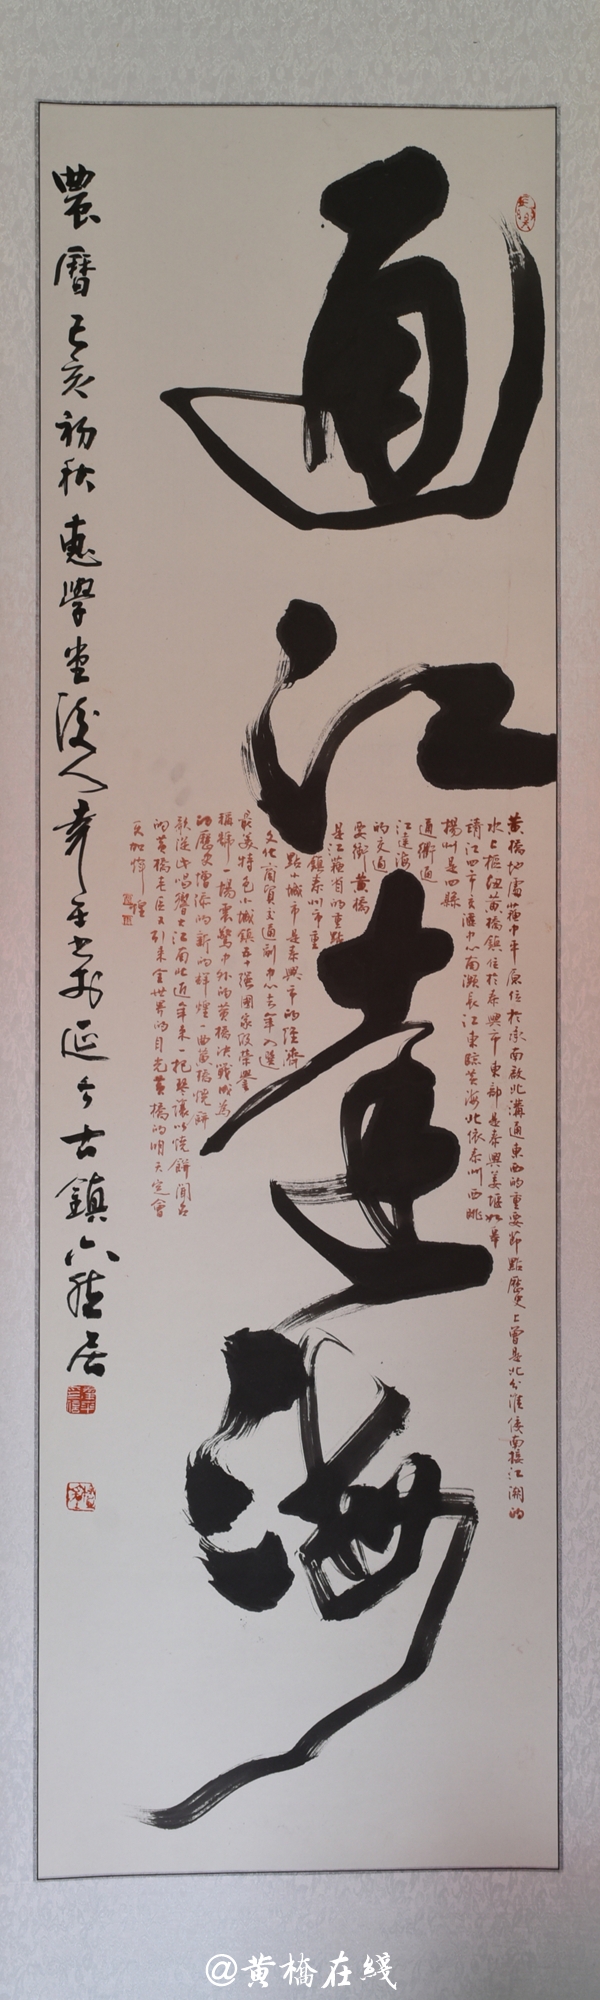 通江達海
黃橋地處蘇中平原位於承南啟北溝通東西的重要節點歷史上曾是北分淮倭南接江湖的
水上樞紐黃橋鎮位於泰興市東部是泰興姜堰如皋
靖江四市交匯中心南瀕長江東臨黃海北依泰州西眺
揚州是四縣
通衢通
江達海
的交通
要衝黃橋
是江蘇省的重點
鎮泰州市重
點小城市是泰興市的經濟
文化商貿交通副中心去年入選
最美特色小城鎮五十強國家級榮譽
稱號一場震驚中外的黃橋決戰成為
的歷史增添的新的輝煌一曲黃橋燒餅
歌從此唱響大江南北近年來一把琴讓以燒餅聞名
的黃橋老區又引來全世界的目光黃橋的明天定會
更加輝煌
農曆己亥初秋惠學堂後人 延令古鎮 居
@黃橋在綫